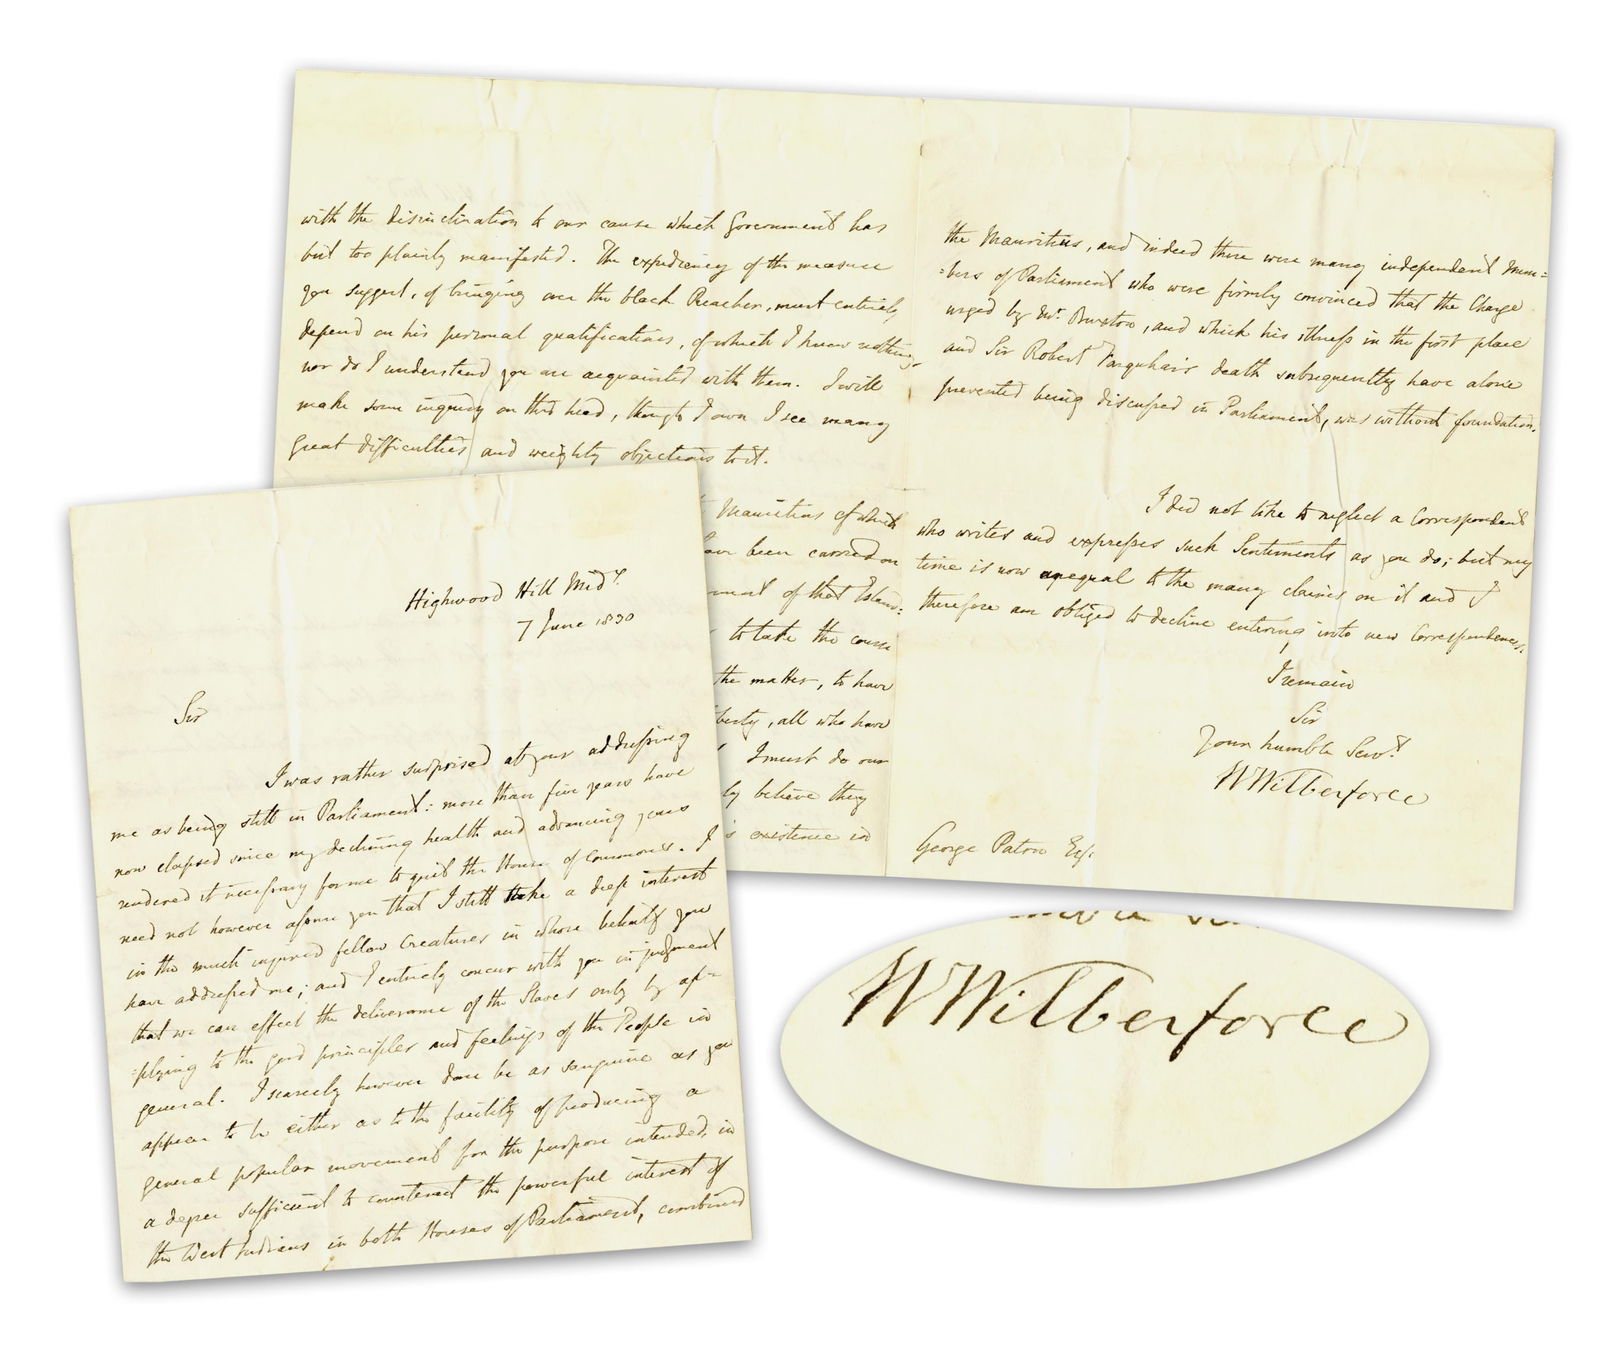 Highwood Hill Midx.
7 June 1830
Sir
I was rather surprised at your addressing
me as being still in Parliament: more than five years have
now elapsed since my declining health and advancing years
rendered it necessary for me to quit the House of Commons. I
need not however assure you that I still take a deep interest
in the much injured fellow Creatures in whose behalf you
have addressed me; and I entirely concur with you in judgment
that we can effect the deliverance of the Slaves only by ap=
=plying to the good principles and feelings of the People in
general. I scarcely however dare be as sanguine as you
appear to be either as to the facility of producing a
general popular movement for the purpose intended, in
a degree sufficient to counteract the powerful interest of
the West Indians in both Houses of Parliament, combined
with the disinclination to our cause which Government has
but too plainly manifested. The expediency of the measure
you suggest, of bringing over the black Preacher, must entirely
depend on his personal qualifications, of which I know nothing
nor do I understand you are acquainted with them. I will
make some inquiry on this head, though I own I see many
great difficulties and weighty objections to it.
Mauritius of which
have been carried on
of that Island:
to take the course
the matter, to have
liberty, all who have
I must do our
believe they
existence in
the Mauritius, and indeed there were many independent Mem=
=bers of Parliament who were firmly convinced that the Charge
urged by Mr. Buxton, and which his illness in the first place
and Sir Robert Farquhar's death subsequently have alone
prevented being discussed in Parliament, was without foundation.
I did not like to neglect a Correspondent
who writes and expresses such Sentiments as you do; but my
time is now unequal to the many claims on it and I
therefore am obliged to decline entering into new Correspondences.
I remain
Sir
Your humble Servt.
W Wilberforce
George Paton Esq.
W Wilberforce